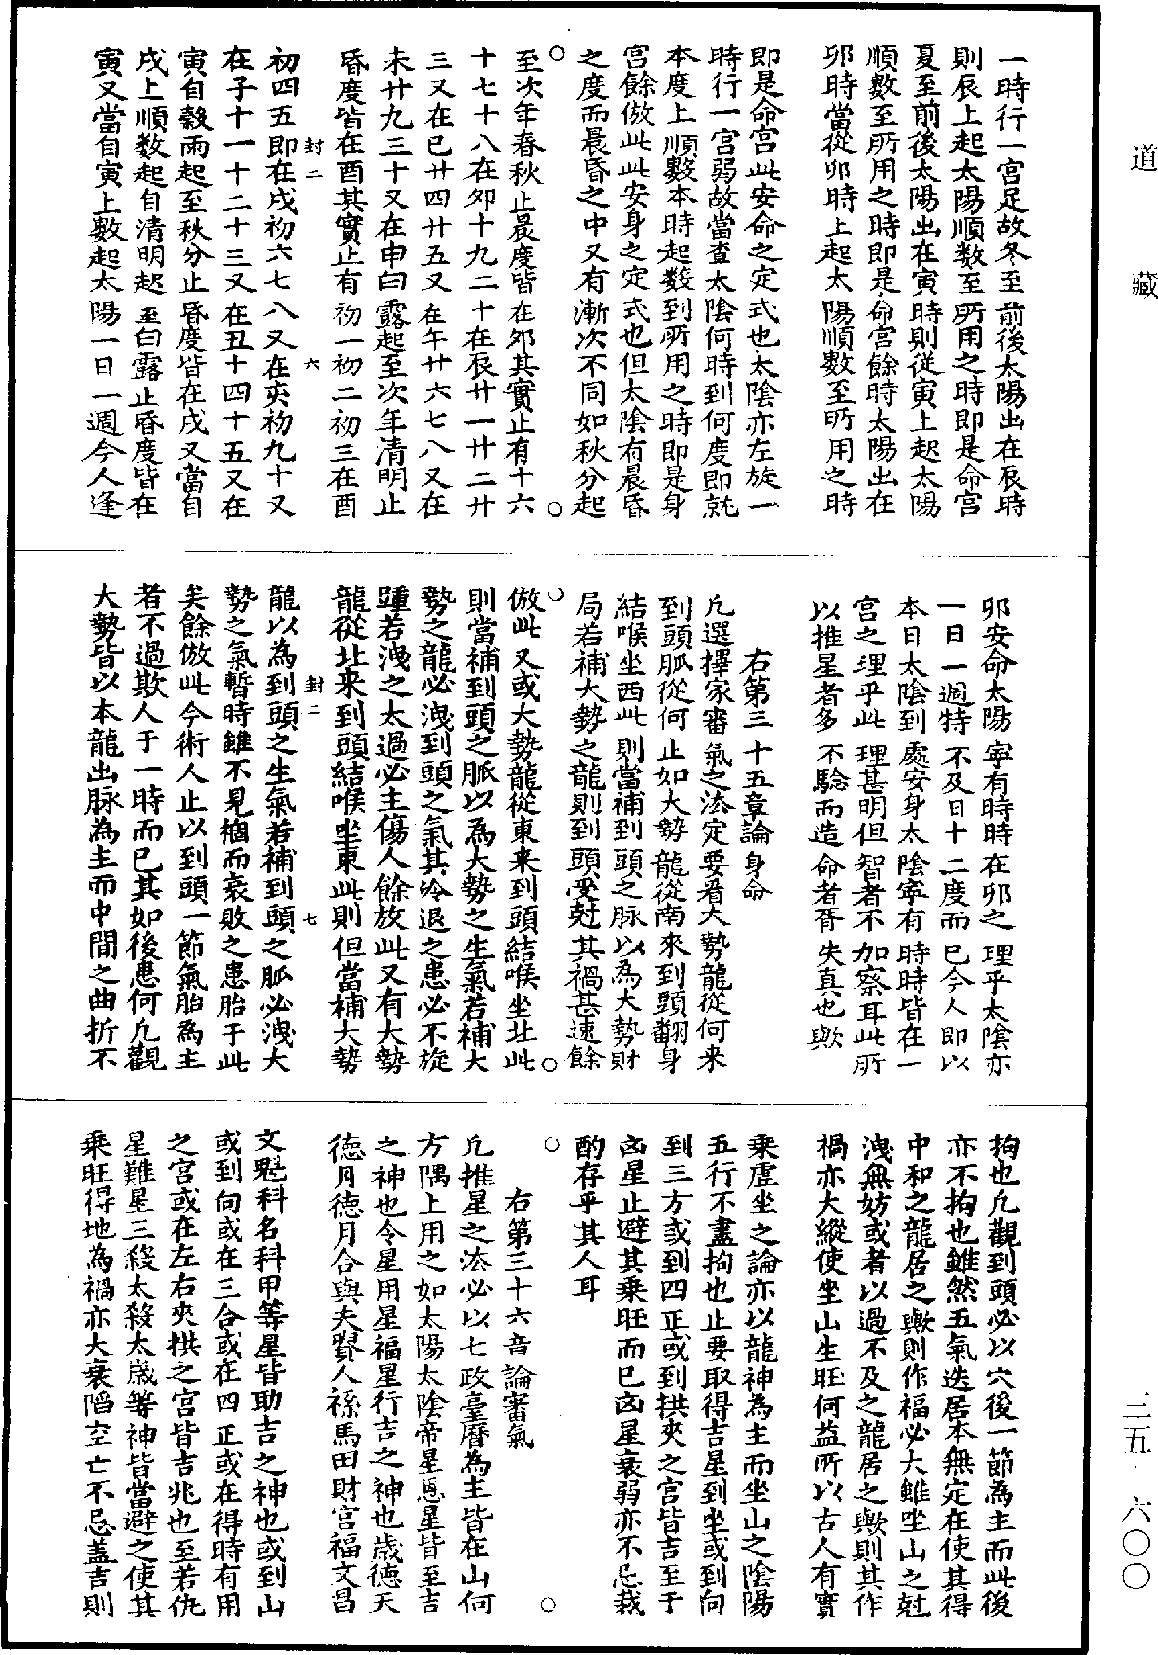 道藏
三五·六〇〇
一時行一宮足故冬至前後太陽出在辰時
則辰上起太陽順數至所用之時即是命宮
夏至前後太陽出在寅時則從寅上起太陽
順數至所用之時即是命宮餘時太陽出在
卯時當從卯時上起太陽順數至所用之時
即是命宮此安命之定式也太陰亦左旋一
時行一宮弱故當查太陰何時到何度即就
本度上順數本時起數到所用之時即是身
宮餘倣此此安身之定式也但太陰有晨昏
之度而晨昏之中又有漸次不同如秋分起
至次年春秋止晨度皆在卯其實止有十六
十七十八在卯十九二十在辰廿一廿二廿
三又在巳廿四廿五又在午廿六七八又在
未廿九三十又在申白露起至次年清明止
昏度皆在酉其實止有初一初二初三在酉
封二　六
初四五即在戌初六七八又在亥初九十又
在子十一十二十三又在丑十四十五又在
寅自穀雨起至秋分止昏度皆在戌又當自
戌上順數起自清明起至白露止昏度皆在
寅又當自寅上數起太陽一日一週今人逢
卯安命太陽寧有時時在卯之理乎太陰亦
一日一週特不及日十二度而已今人即以
本日太陰到處安身太陰寧有時時皆在一
宮之理乎此理甚明但智者不加察耳此所
以推星者多不驗而造命者胥失真也歟
右第三十五章論身命
凡選擇家審氣之法定要看大勢龍從何来
到頭脈從何止如大勢龍從南來到頭翻身
結喉坐西此則當補到頭之脉以為大勢財
局若補大勢之龍則到頭受尅其禍甚速餘
倣此又或大勢龍從東来到頭結喉坐北此
則當補到頭之脈以為大勢之生氣若補大
勢之龍必洩到頭之氣其冷退之患必不旋
踵若洩之太過必主傷人餘放此又有大勢
龍從北来到頭結喉坐東此則但當補大勢
封二　七
龍以為到頭之生氣若補到頭之脈必洩大
勢之氣暫時雖不見禍而衰敗之患胎于此
矣餘倣此今術人止以到頭一節氣胎為主
者不過欺人于一時而已其如後患何凡觀
大勢皆以本龍出脉為主而中間之曲折不
拘也凡觀到頭必以穴後一節為主而此後
亦不拘也雖然五氣迭居本無定在使其得
中和之龍居之歟則作福必大雖坐山之尅
洩無妨或者以過不及之龍居之歟則其作
禍亦大縱使坐山生旺何益所以古人有實
乘虛坐之論亦以龍神為主而坐山之陰陽
五行不盡拘也止要取得吉星到坐或到向
到三方或到四正或到拱夾之宮皆吉至于
凶星止避其乘旺而已凶星衰弱亦不忌裁
酌存乎其人耳
右第三十六音論審氣
凡推星之法必以七政臺曆為主皆在山何
方隅上用之如太陽太陰帝星恩星皆至吉
之神也令星用星福星行吉之神也歲德天
德月德月合與夫貴人祿馬田財官福文昌
文魁科名科甲等星皆助吉之神也或到山
或到向或在三合或在四正或在得時有用
之宮或在左右夾拱之宮皆吉兆也至若仇
星難星三殺太殺太歲等神皆當避之使其
乘旺得地為禍亦大衰陷空亡不忌蓋吉則